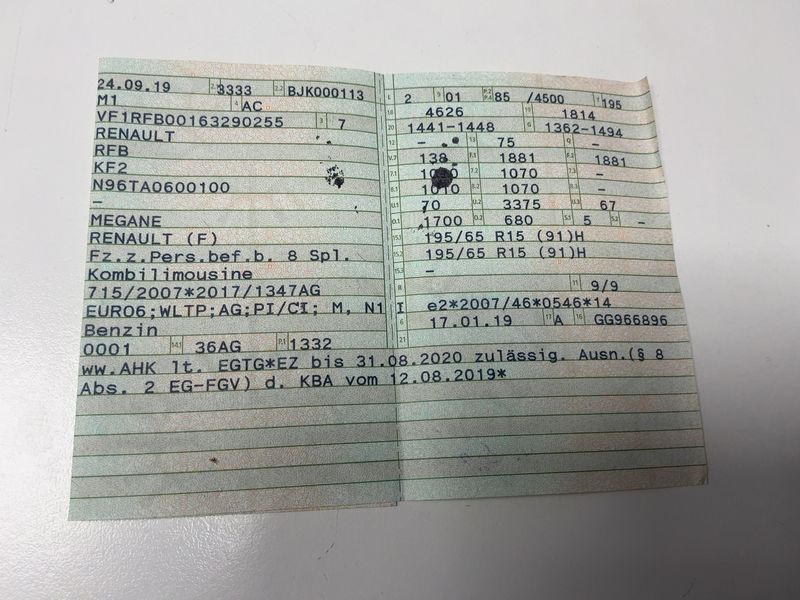 24.09.19 2.1 3333 2.2 BJK000113
M1 4 AC
VF1RFB00163290255 3 7
RENAULT
RFB
KF2
N96TA0600100
–
MEGANE
RENAULT (F)
Fz.z.Pers.bef.b. 8 Spl.
Kombilimousine
715/2007*2017/1347AG
EURO6;WLTP;AG;PI/CI; M, N1 I
Benzin
0001 14.1 36AG P.1 1332
L 2 9 01 P.2 P.4 85 /4500 T 195
18 4626 19 1814
20 1441-1448 G 1362-1494
12 – 13 75 Q –
V.7 138 F.1 1881 F.2 1881
7.1 7.2 1070 7.3 –
8.1 1010 8.2 1070 8.3 –
U.1 70 U.2 3375 U.3 67
O.1 1700 O.2 680 S.1 5 S.2 –
15.1 195/65 R15 (91)H
15.2 195/65 R15 (91)H
15.3 –
R 11 9/9
K e2*2007/46*0546*14
6 17.01.19 17 A 16 GG966896
21
ww.AHK lt. EGTG*EZ bis 31.08.2020 zulässig. Ausn.(§ 8
Abs. 2 EG-FGV) d. KBA vom 12.08.2019*